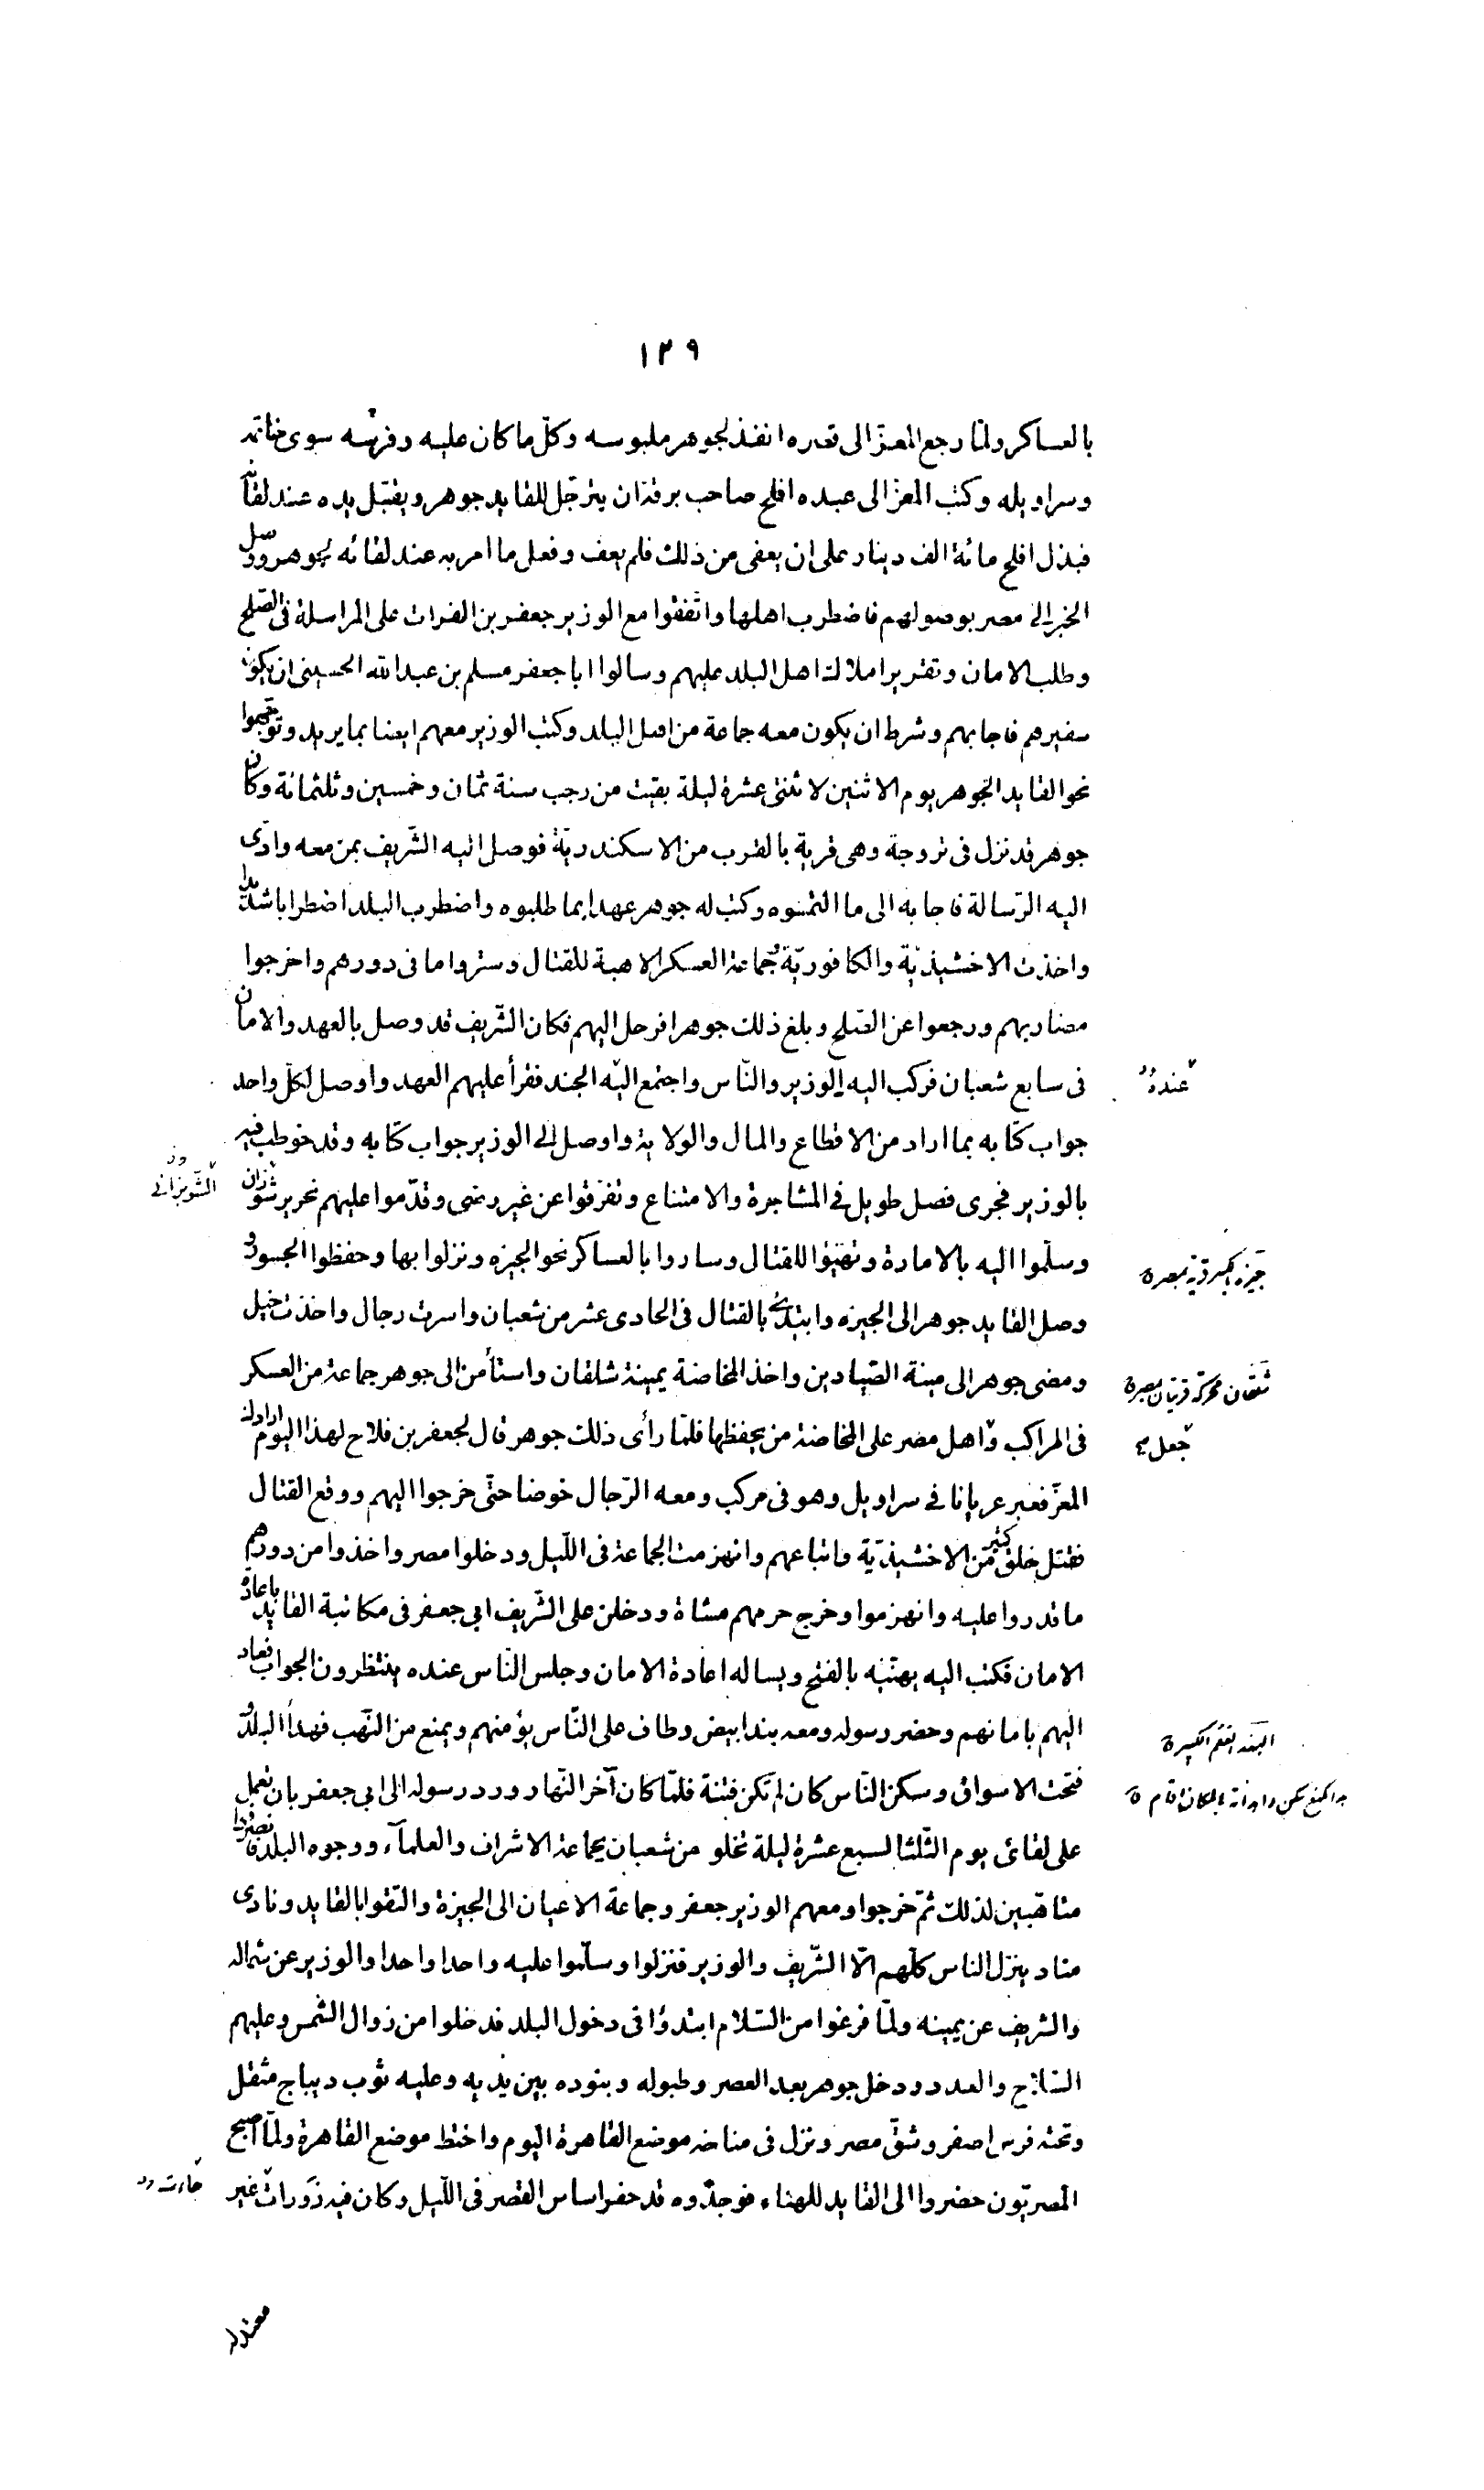 ١٢٩
بالعساكر ولمّا رجع المعزّ الى قصره انفذ لجوهر ملبوسه وكلّ ما كان عليه وفرسه سوى خاتمه
وسراويله وكتب المعزّ الى عبده افلح صاحب برقة ان يترجّل للقايد جوهر ويقبّل يده عند لقآئه
فبذل افلح مائة الف دينار على ان يعفى من ذلك فلم يعف وفعل ما امر به عند لقائه لجوهر ووصل
الخبر الى مصر بوصولهم فاضطرب اهلها واتّفقوا مع الوزير جعفر بن الفرات على المراسلة فى الصّلح
وطلب الامان وتقرير املاك اهل البلد عليهم وسالوا ابا جعفر مسلم بن عبد الله الحسينى ان يكون
سفيرهم فاجابهم وشرط ان يكون معه جماعة من اهل البلد وكتب الوزير معهم ايضا بما يريد وتوجّهوا
نحو القايد الجوهر يوم الاثنين لاثنتى عشرة ليلة بقيت من رجب سنة ثمان وخمسين وثلثمائة وكان
جوهر قد نزل فى تروجة وهى قرية بالقرب من الاسكندريّة فوصل اليه الشّريف بمن معه وادّى
اليه الرّسالة فاجابه الى ما التمسوه وكتب له جوهر عهدا بما طلبوه واضطرب البلد اضطرابا شديدا
واخذت الاخشيذيّة والكافوريّة وجماعة العسكر الاهبة للقتال وستروا ما فى دورهم واخرجوا
مضاربهم ورجعوا عن الصّلح وبلغ ذلك جوهرا فرحل اليهم فكان الشّريف قد وصل بالعهد والامان
فى سابع شعبان فركب اليه الوزير والنّاس واجتمع اليه الجند فقرأ عليهم العهد واوصل لكلّ واحد
عنده
جواب كتابه بما اراد من الاقطاع والمال والولاية واوصل الى الوزير جواب كتابه وقد خوطب فيه
بالوزير فجرى فصل طويل فى المشاجرة والامتناع وتفرّقوا عن غير رضى وقدّموا عليهم نحرير شوزان
الشّويزانى
وسلّموا اليه بالامارة وتهيّؤا للقتال وساروا بالعساكر نحو الجيزه ونزلوا بها وحفظوا الجسور و
جيزه
وصل القايد جوهر الى الجيزه وابتدئ بالقتال فى الحادى عشر من شعبان واسرت رجال واخذت خيل
ومضى جوهر الى مينة الصّيادين واخذ المخاضة بمينة شلقان واستأمن الى جوهر جماعة من العسكر
فى المراكب وّاهل مصر على المخاضة من يحفظها فلمّا رأى ذلك جوهر قال لجعفر بن فلاح لهذا اليوم ارادك
جعل
المعزّ فعبر عريانا فى سراويل وهو فى مركب ومعه الرّجال خوضا حتّى خرجوا اليهم ووقع القتال
فقتل خلق كثير من الاخشيذيّة واتباعهم وانهزمت الجماعة فى اللّيل ودخلوا مصر واخذوا من دورهم
ما قدروا عليه وانهزموا وخرج حرمهم مشاة ودخلن على الشّريف ابى جعفر فى مكاتبة القايد باعادة
الامان فكتب اليه يهنّيه بالفتح ويساله اعادة الامان وجلس النّاس عنده ينتظرون الجواب فعاد
اليهم بامانهم وحضر رسوله ومعه بند ابيض وطاف على النّاس يؤمنهم ويمنع من النّهب فهدأ البلد و
البند العلم الكبير
فتحت الاسواق وسكن النّاس كان لم تكن فتنة فلمّا كان آخر النّهار ورد رسوله الى ابى جعفر بان تعمل
على لقائى يوم الثّلثا لسبع عشرة ليلة تخلو من شعبان بجماعة الاشراف والعلمآء ووجوه البلد فانصرفوا
متاهّبين لذلك ثمّ خرجوا ومعهم الوزير جعفر وجماعة الاعيان الى الجيزة والتقوا بالقايد ونادى
مناد ينزل الناس كلّهم الّا الشّريف والوزير فنزلوا وسلّموا عليه واحدا واحدا والوزير عن شماله
والشريف عن يمينه ولمّا فرغوا من السّلام ابتدؤا فى دخول البلد فدخلوا من زوال الشّمس وعليهم
السّلاح والعدد ودخل جوهر بعد العصر وطبوله وبنوده بين يديه وعليه ثوب ديباج مثقل
وتحته فرس اصفر وشقّ مصر ونزل فى مناخه موضع القاهرة اليوم واختط موضع القاهرة ولمّا اصبح
المصريّون حضروا الى القايد للهناء فوجدّوه قد حفر اساس القصر فى اللّيل وكان فيه زورات غير
جاءت
معتدلة